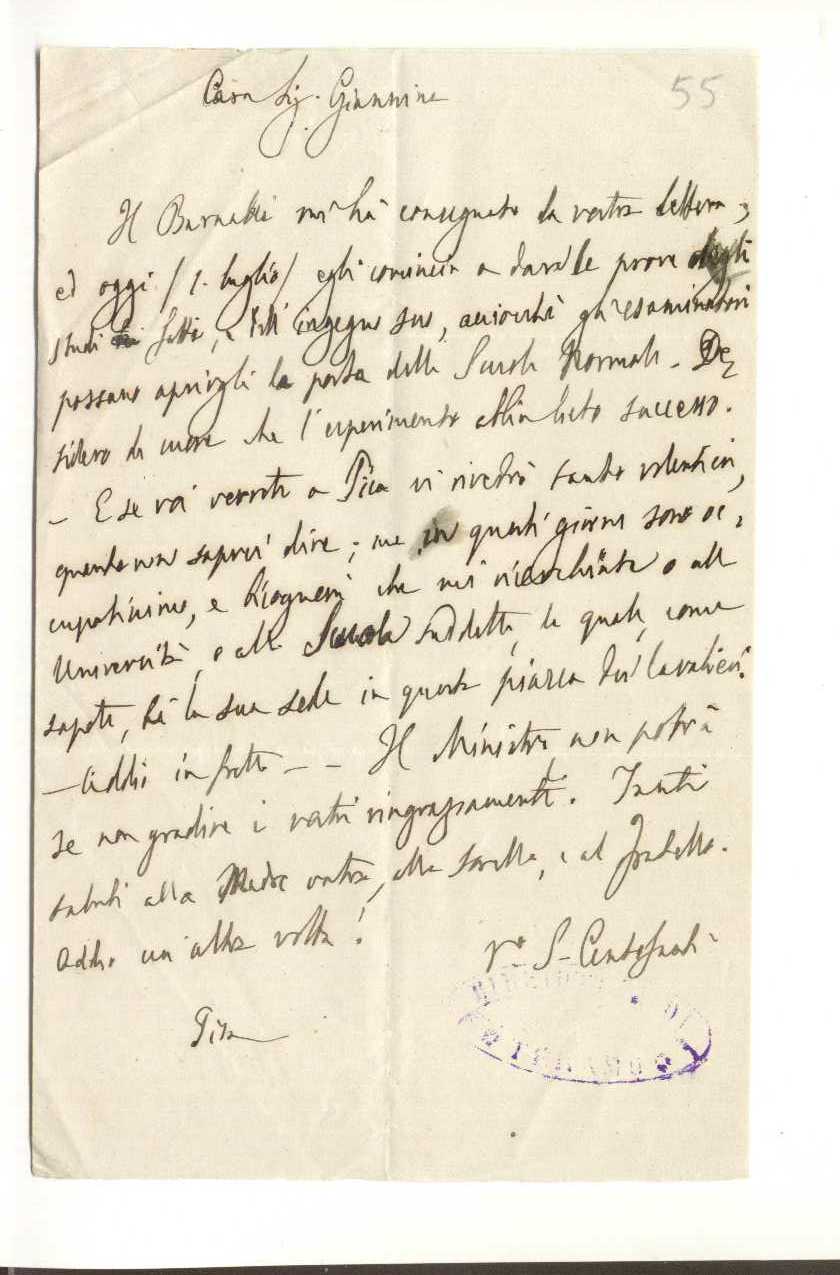 Cara Sig. Giannina
55
Il Barnabei mi hà consegnato la vostra lettera;
ed oggi (1. luglio) egli comincia a dare le prove degli
studi fatti, e dell'ingegno suo, acciocchè gli esaminatori
possano aprirgli la porta della Scuola Normale. De
sidero di cuore che l'esperimento abbia lieto successo.
– E se voi verrete a Pisa vi rivedrò tanto volentieri,
quanto non saprei dire; ma in questi giorni sono oc,
cupatissimo, e bisognerà che mi o alla
Università, o alla Scuola suddetta, la quale, come
sapete, hà la sua sede in questa piazza dei Cavalieri.
– Addio in fretta – – Il Ministro non potrà
se non gradire i vostri ringraziamenti. Tanti
saluti alla Madre vostra, alla sorella, e al fratello.
Addio un'altra volta!
Vº S. Centofanti
Pisa
DI
TERAMO